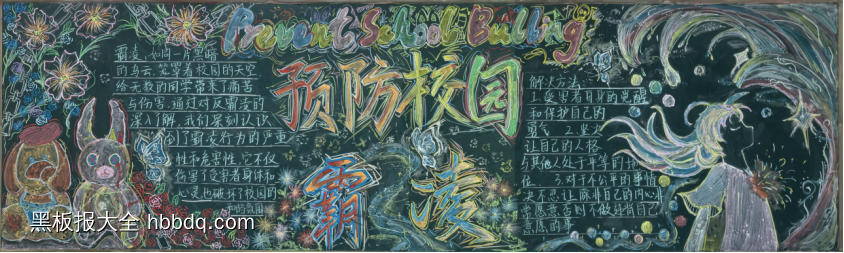 Prevent School Bulling
预防校园
霸凌
霸凌,如同一片黑暗
的乌云,笼罩着校园的天空
给无数的同学带来了痛苦
与伤害.通过对反霸凌的
深入了解,我们深刻认识
到了霸凌行为的严重
性和危害性,它不仅
伤害了受害者身体和
心灵也破坏了校园的
解决方法
1.受害者自身的觉醒
和保护自己的
勇气 2.坚决
让自己的人格
与其他人处于平等的
位 3.对于不公平的事情
决不忍让麻非自己的内心
常愿意否则不做违背自己
意愿的事
黑板报大全 hbbdq.com